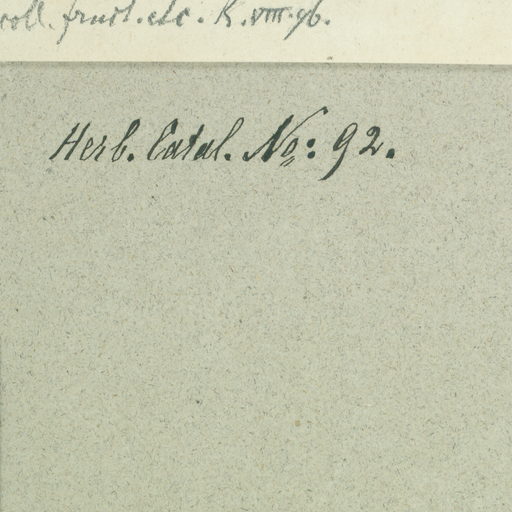 coll. fruct. etc. K. VIII. 96.
Herb. Catal. No: 92.